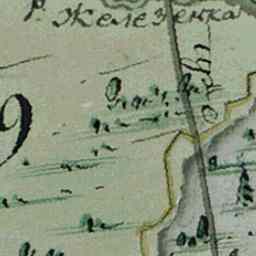 р. Железенка
9